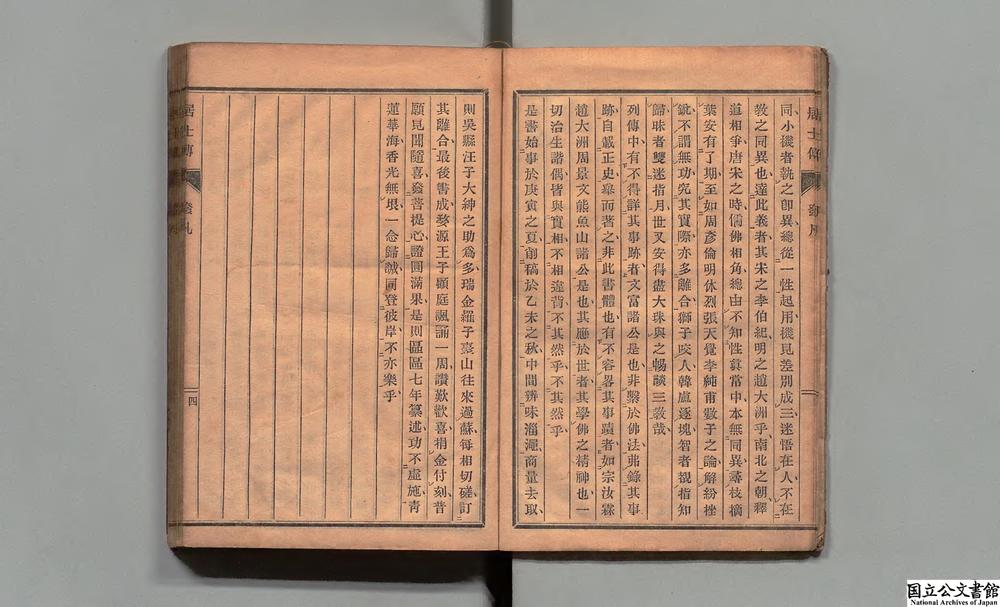 同小機者執之卽異總從一性起用機見差別成三迷悟在人不在
敎之同異也達此義者其宋之李伯紀明之趙大洲乎南北之朝釋
道相爭唐宋之時儒佛相角總由不知性眞當中本無同異尋枝摘
葉安有了期至如周彥倫明休烈張天覺李純甫數子之論解紛挫
銳不謂無功究其實際亦多離合獅子咬人韓盧逐塊智者觀指知
歸昧者雙迷指月世又安得盡大珠與之暢談三敎哉
列傳中有不得詳其事跡者文富諸公是也非繫於佛法弗錄其事
跡自載正史舉而著之非此書體也有不容畧其事蹟者如宗汝霖
趙大洲周景文熊魚山諸公是也其應於世者其學佛之精神也一
切治生諧偶皆與實相不相違背不其然乎不其然乎
是書始事於庚寅之夏削稿於乙未之秋中間辨味淄澠商量去取
則吳縣汪子大紳之助爲多瑞金羅子臺山往來過蘇每相切磋訂
其離合最後書成婺源王子顧庭諷誦一周讚歎歡喜捐金付刻普
願見聞隨喜發菩提心證圓滿果是則區區七年纂述功不虛施靑
蓮華海香光無垠一念歸誠同登彼岸不亦樂乎
居士傳
發凡
四
国立公文書館
National Archives of Japan